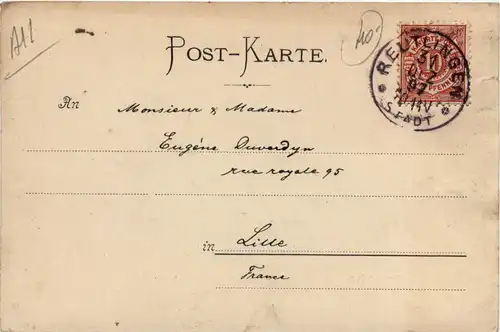 A11
40
POST-KARTE.
REUTLINGEN
97
STADT
10
An Monsieur & Madame
Eugène Duverdyn
rue royale 95
in Lille
France